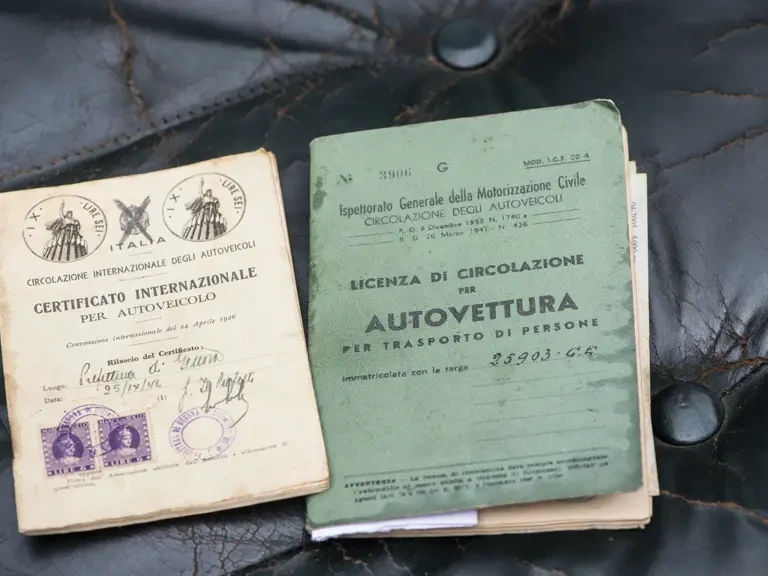 IX · LIRE SEI
IX · LIRE SEI
ITALIA
CIRCOLAZIONE INTERNAZIONALE DEGLI AUTOVEICOLI
CERTIFICATO INTERNAZIONALE
PER AUTOVEICOLO
Convenzione internazionale del 24 Aprile 1926
Rilascio del Certificato:
Luogo: Prefettura di Genova
Data: 25/IX/46
(1)
LIRE 6
LIRE 6
Nº 3906 G
MOD. I.G.F. 22 A
Ispettorato Generale della Motorizzazione Civile
CIRCOLAZIONE DEGLI AUTOVEICOLI
R.D. 8 Dicembre 1933 N. 1740 e
R.D. 26 Marzo 1941 - N. 426
LICENZA DI CIRCOLAZIONE
PER
AUTOVETTURA
PER TRASPORTO DI PERSONE
Immatricolata con la targa 25903 · GE
AVVERTENZA - La licenza di circolazione deve sempre accompagnare